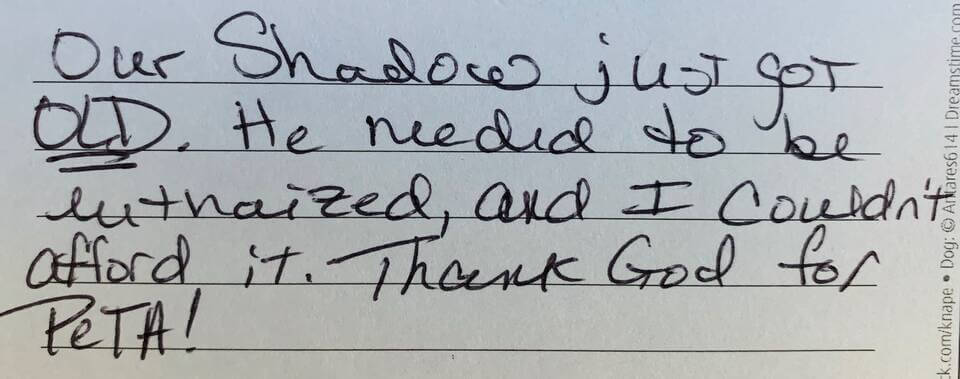 Our Shadow just got
OLD. He needed to be
euthaized, and I couldn't
afford it. Thank God for
PeTA!
ck.com/knape • Dog: © Antares614 | Dreamstime.com